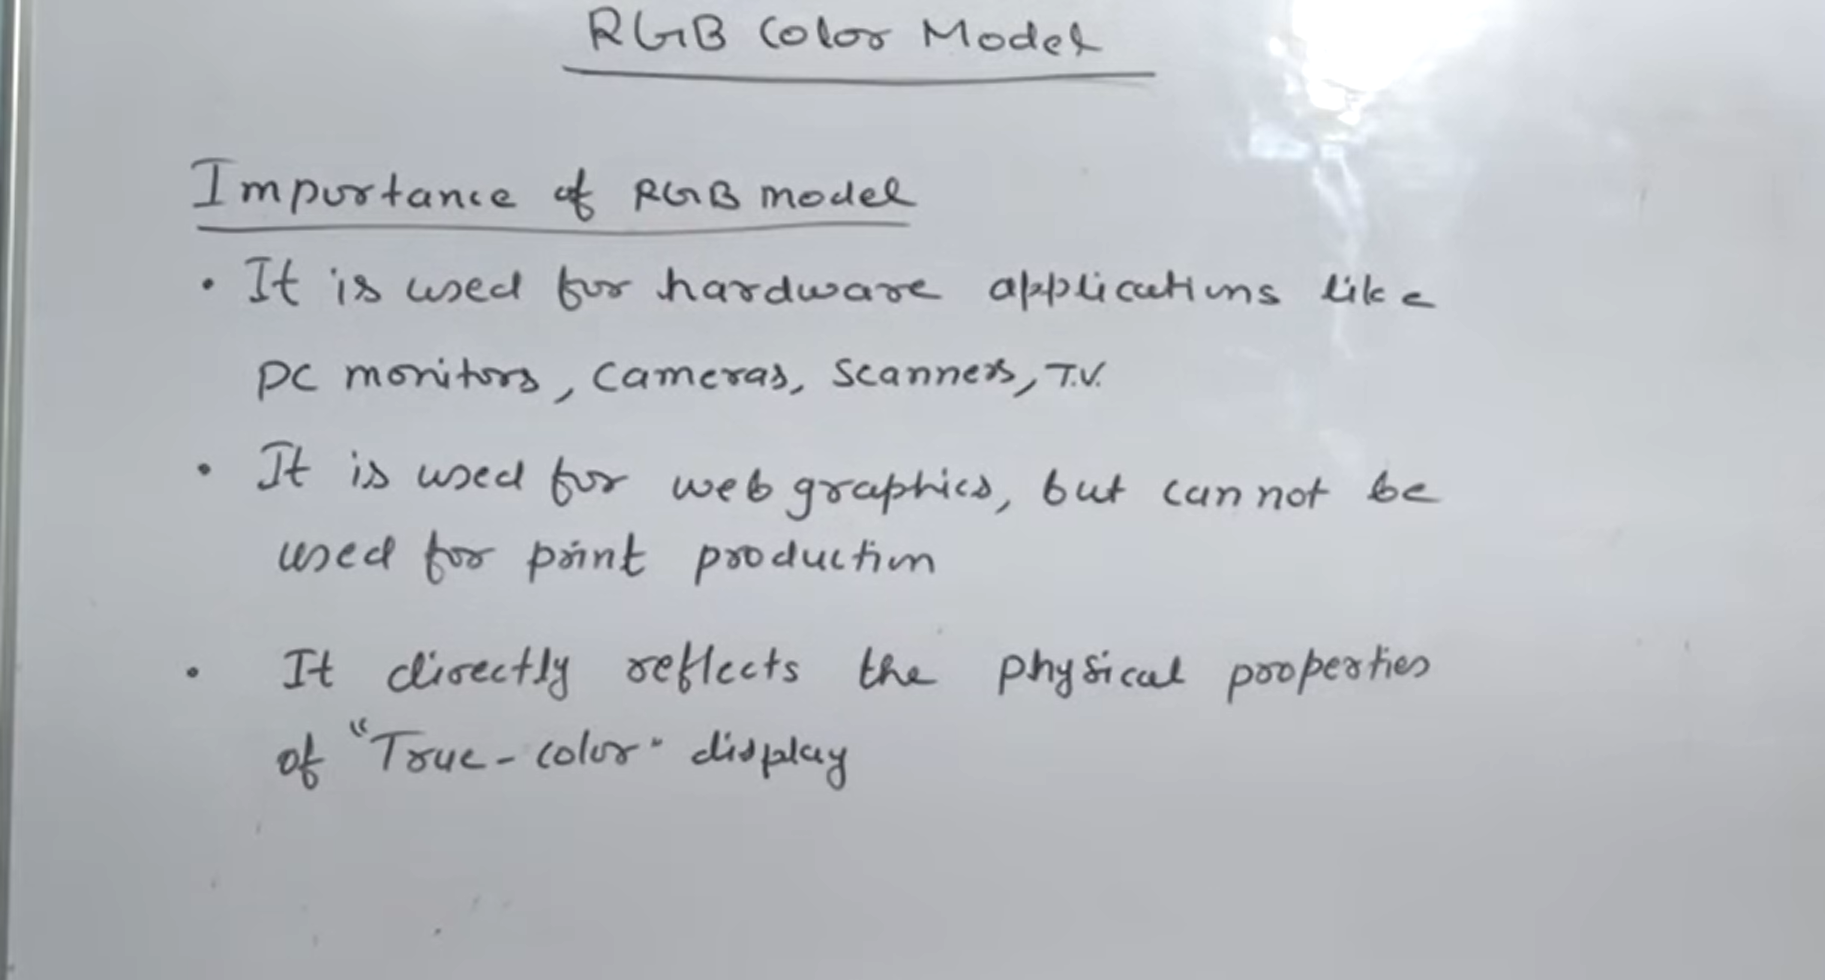 RGB Color Model
Importance of RGB model
• It is used for hardware applications like
PC monitors, Cameras, Scanners, T.V.
• It is used for web graphics, but can not be
used for print production
• It directly reflects the physical properties
of "True-color" display